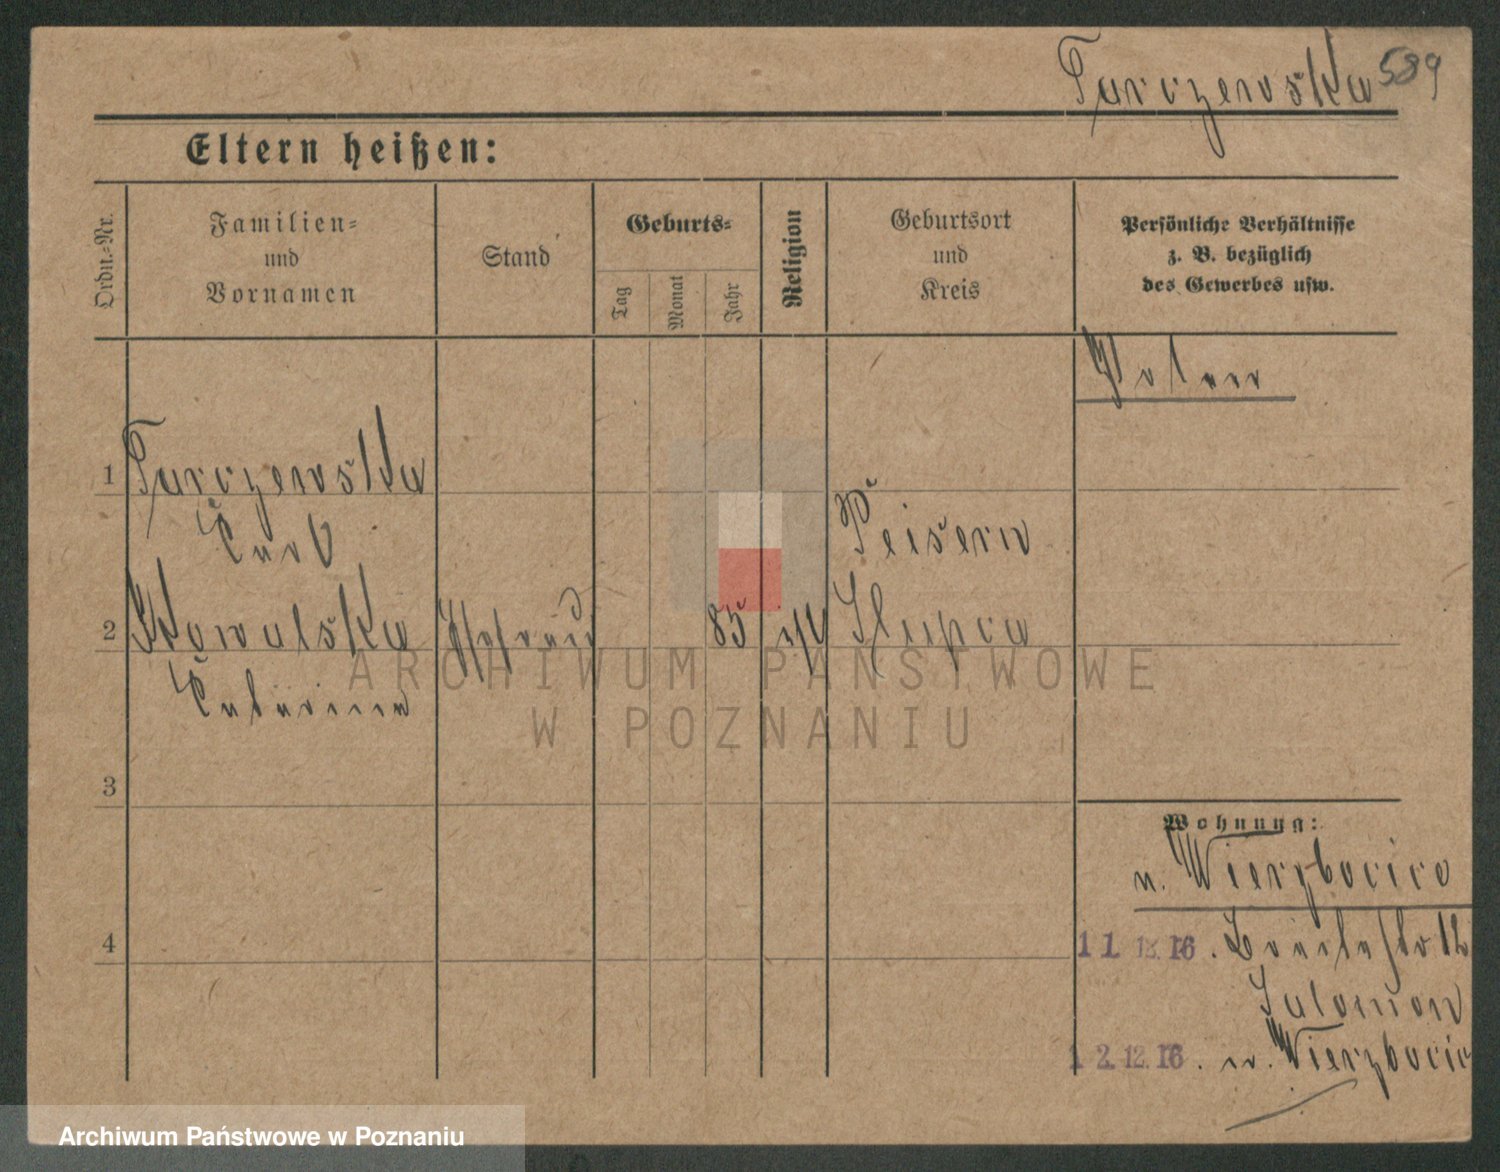 Tarczewska 589
Eltern heißen:
Ordn.-Nr.
Familien-
und
Vornamen
Stand
Geburts-
Tag
Monat
Jahr
Religion
Geburtsort
und
Kreis
Persönliche Verhältnisse
z. B. bezüglich
des Gewerbes usw.
Polen
1 Tarczewska
Peisern
2 Kowalska 85 Slupca
Catarina
3
Wohnung:
n. Wierzbocice
4
11. 12. 16. Breitestr 12
Salomon
12. 12. 16. n. Wierzbocic
ARCHIWUM PAŃSTWOWE
W POZNANIU
Archiwum Państwowe w Poznaniu